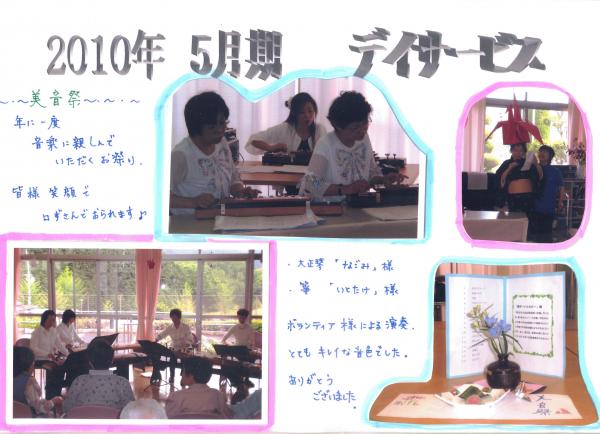 2010年 5月期 デイサービス
～・～美音祭～・～・～
年に一度
音楽に親しんで
いただくお祭り.
皆様笑顔で
口ずさんでおられます♪
・大正琴「なごみ」様
・箏 「いとたけ」様
ボランティア様による演奏.
とてもキレイな音色でした。
ありがとう
ございました